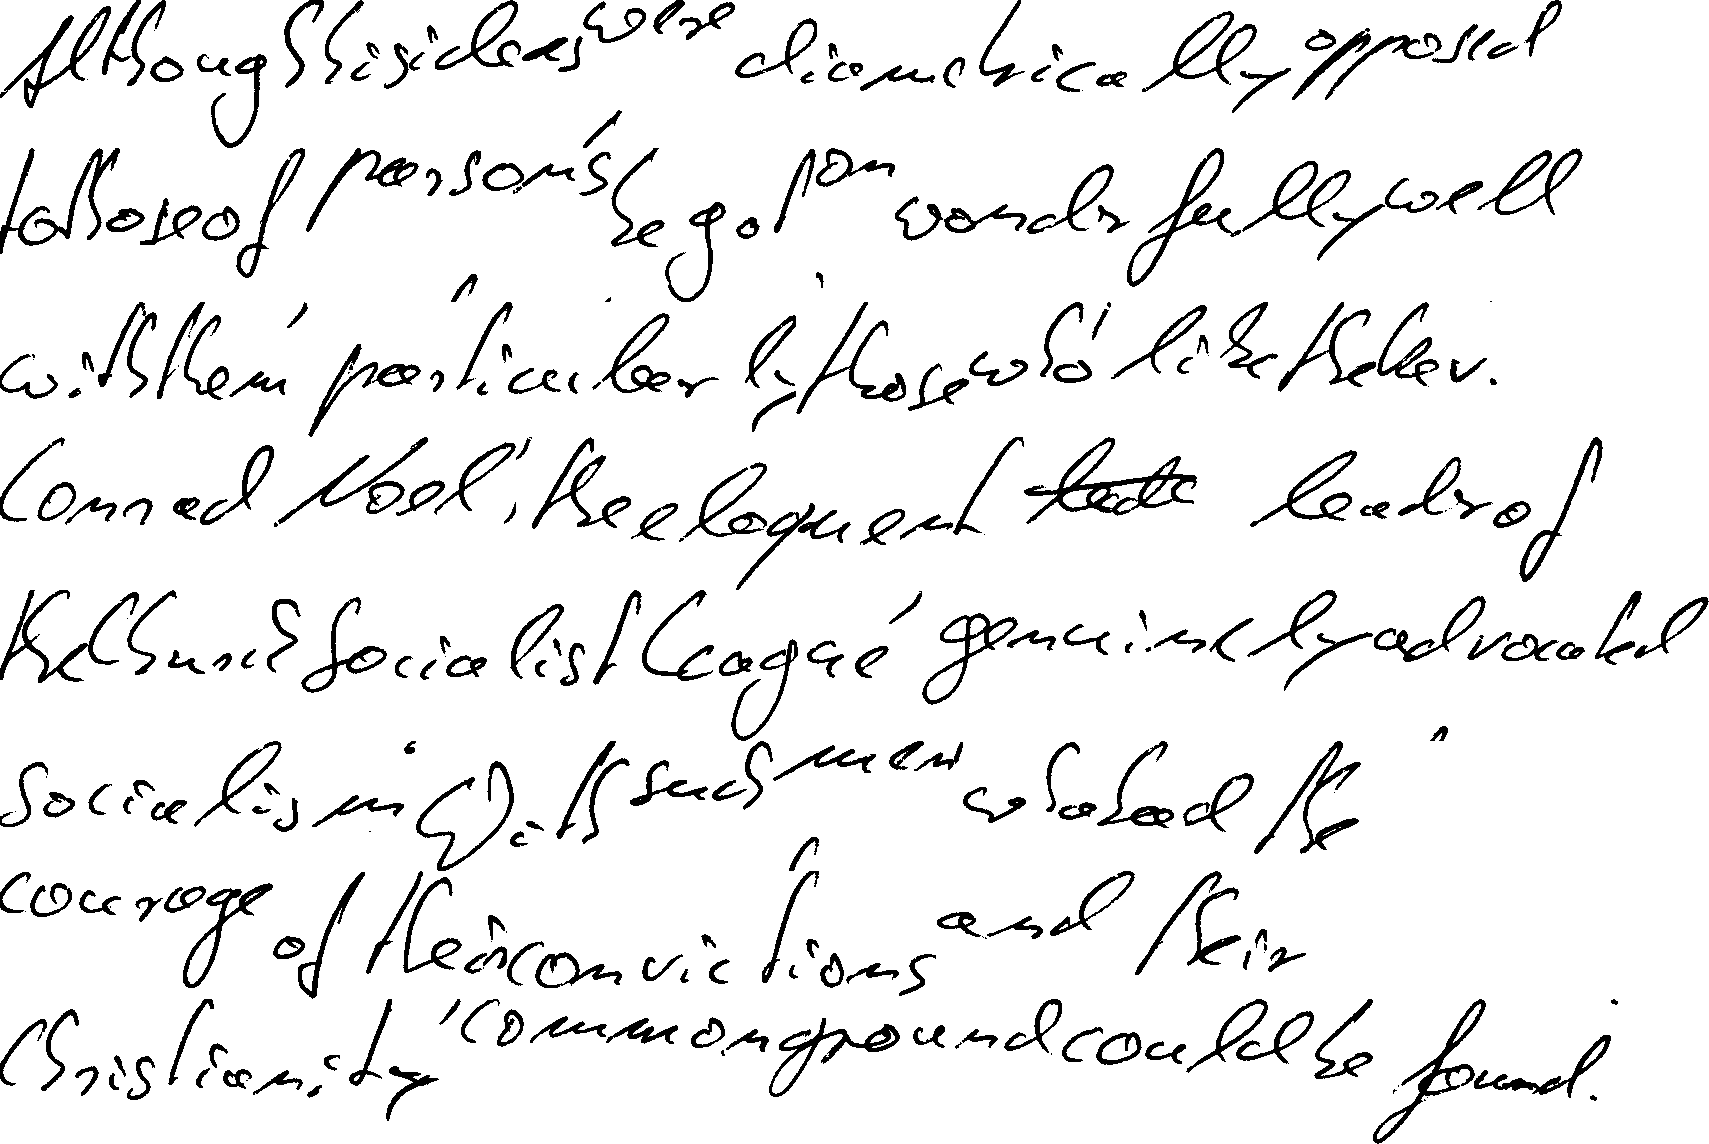 Although his ideas were diametrically opposed
to those of parsons he got on wonderfully well
with them particularly those who like the Rev.
Conrad Noel, the eloquent leader of
the Church Socialist League genuinely advocated
Socialism. With such men who had the
courage of their convictions and their
Christianity common ground could be found.